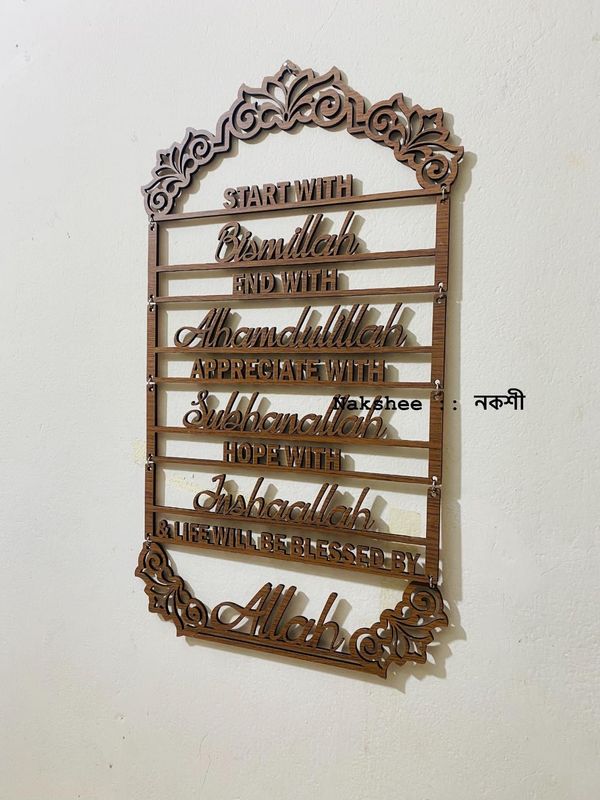 START WITH
Bismillah
END WITH
Alhamdulillah
APPRECIATE WITH
Subhanallah
Nakshee :: নকশী
HOPE WITH
Inshaallah
& LIFE WILL BE BLESSED BY
Allah